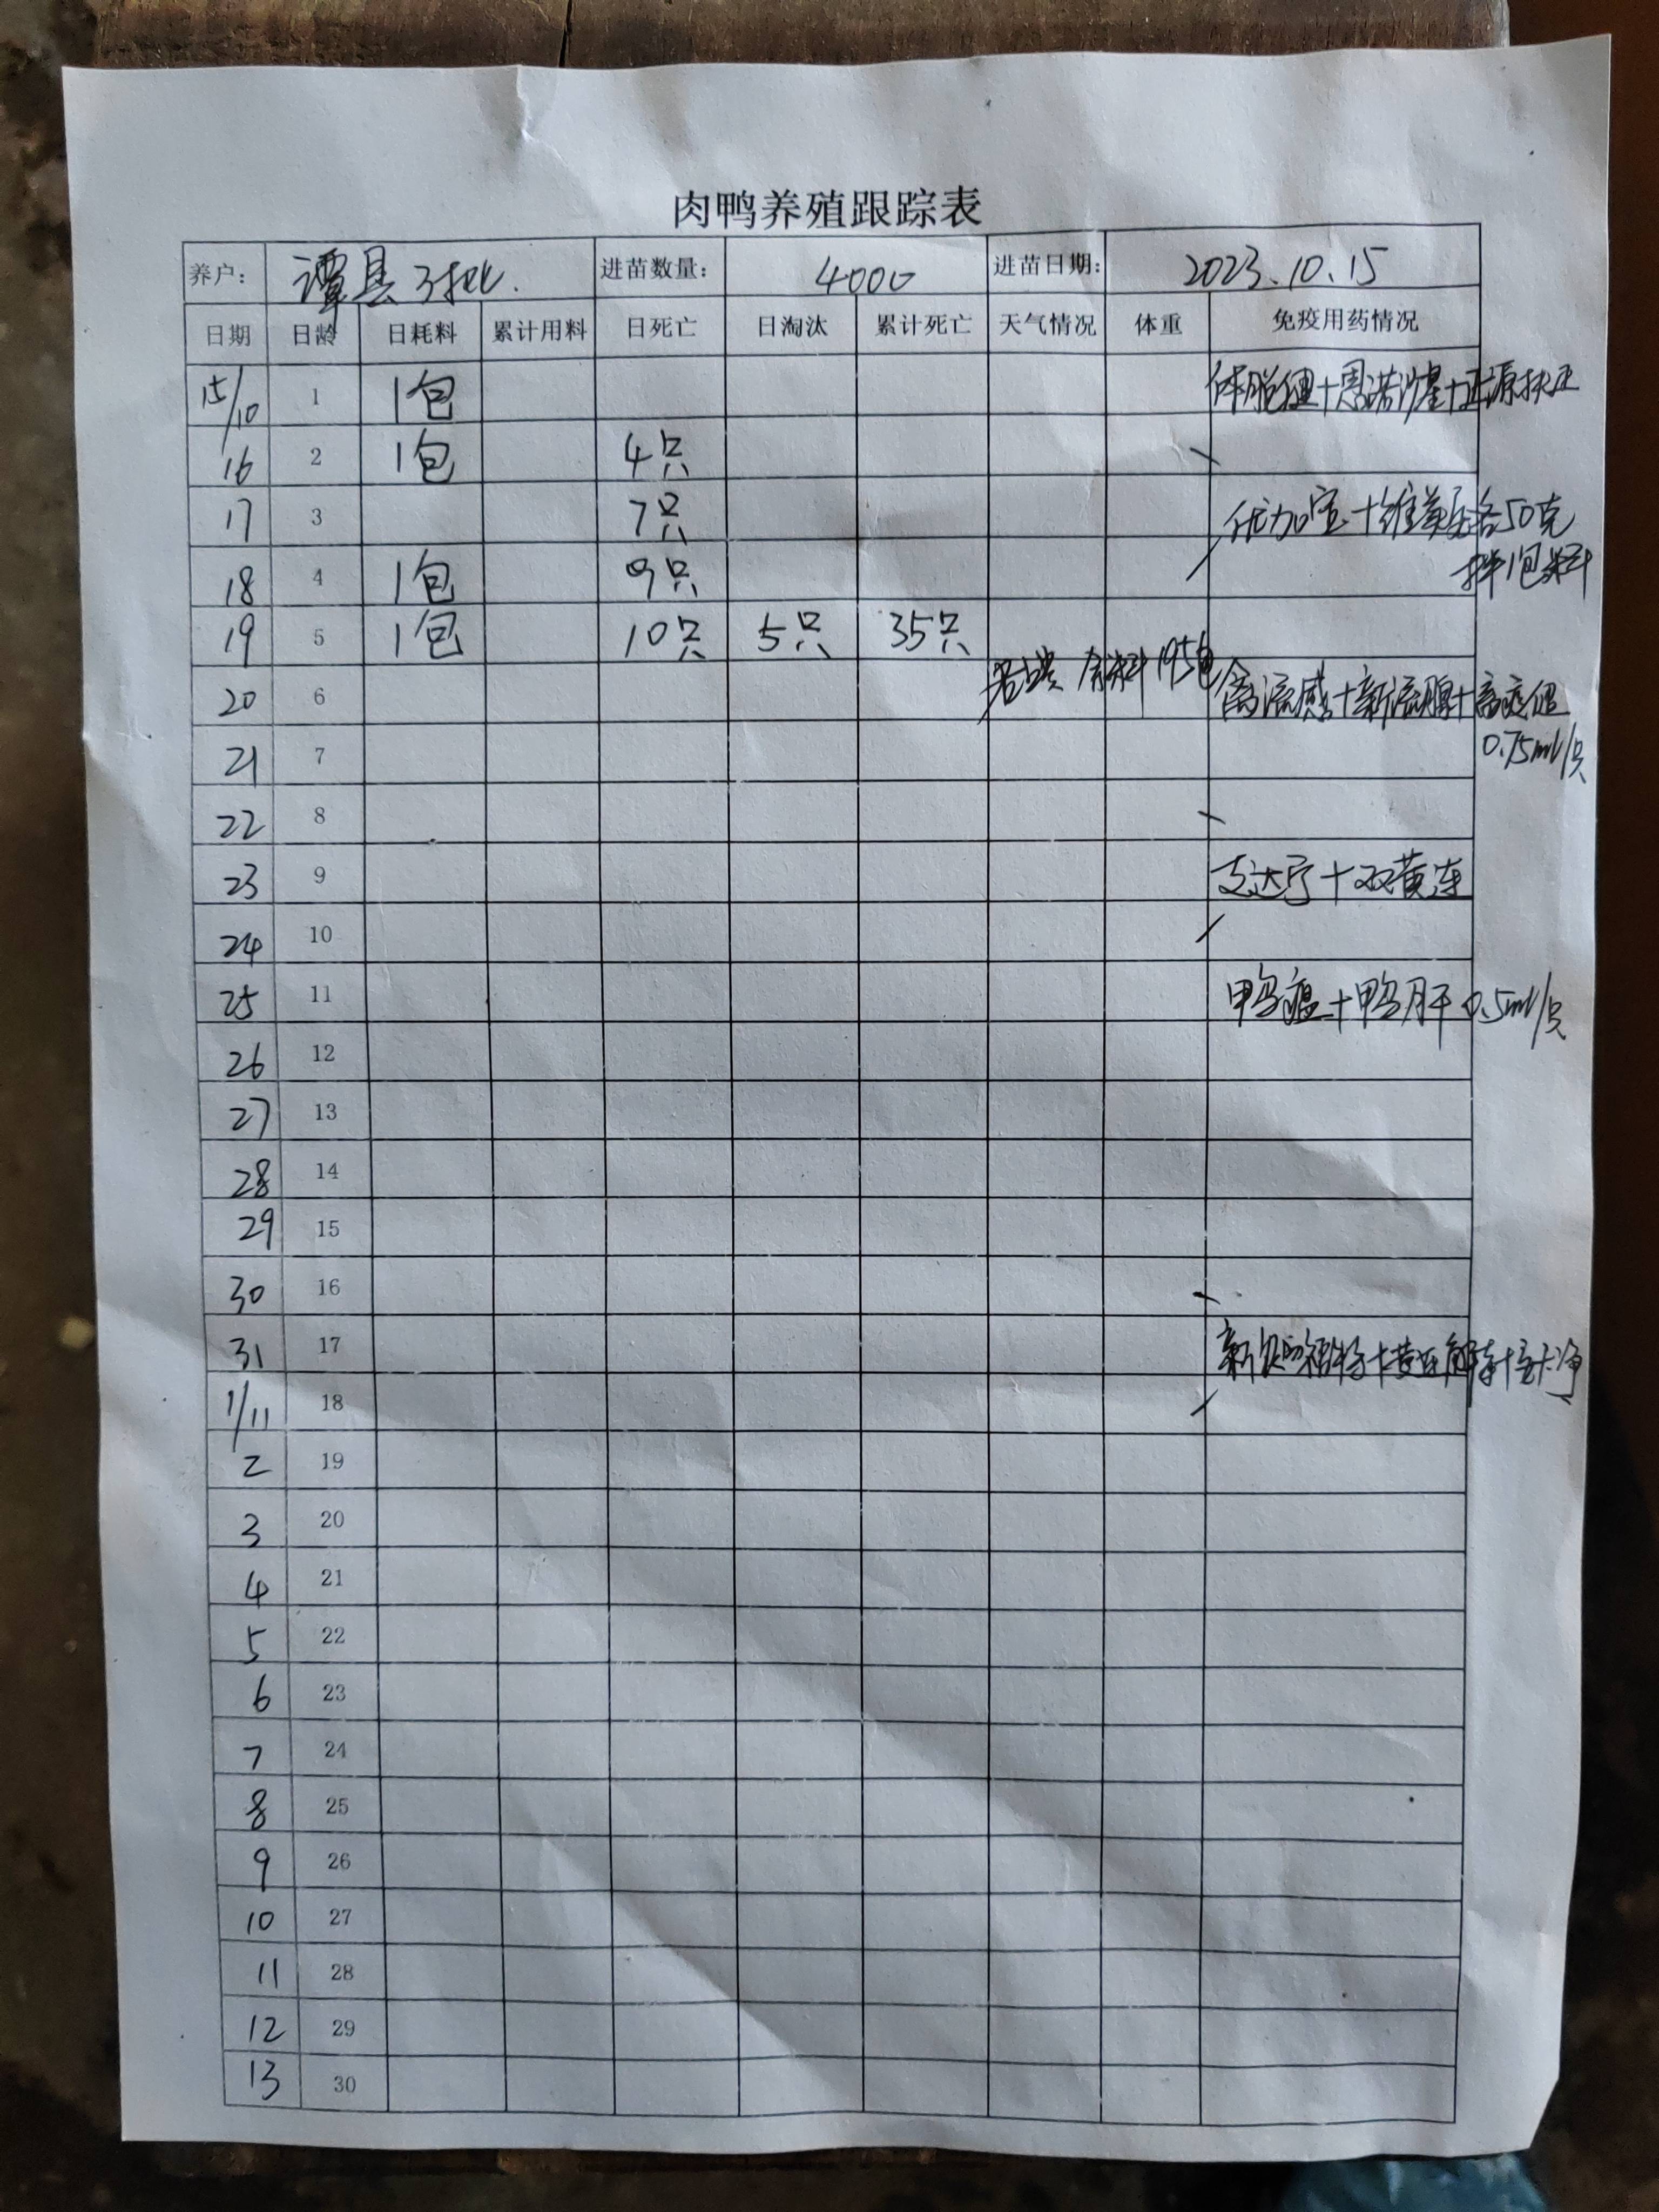 肉鸭养殖跟踪表
养户： 谭县3批. 进苗数量： 4000 进苗日期： 2023.10.15
日期 日龄 日耗料 累计用料 日死亡 日淘汰 累计死亡 天气情况 体重 免疫用药情况
15/10 1 1包
16 2 1包 4只
17 3 7只 优加宝+维 50克
拌1包料
18 4 1包 9只
19 5 1包 10只 5只 35只
20 6 余料195包 禽流感+新流腺+禽疫但
0.75ml/只
21 7
22 8
23 9 支达宁+双黄连
24 10
25 11 鸭瘟+鸭肝 0.5ml/只
26 12
27 13
28 14
29 15
30 16
31 17
1/11 18
2 19
3 20
4 21
5 22
6 23
7 24
8 25
9 26
10 27
11 28
12 29
13 30